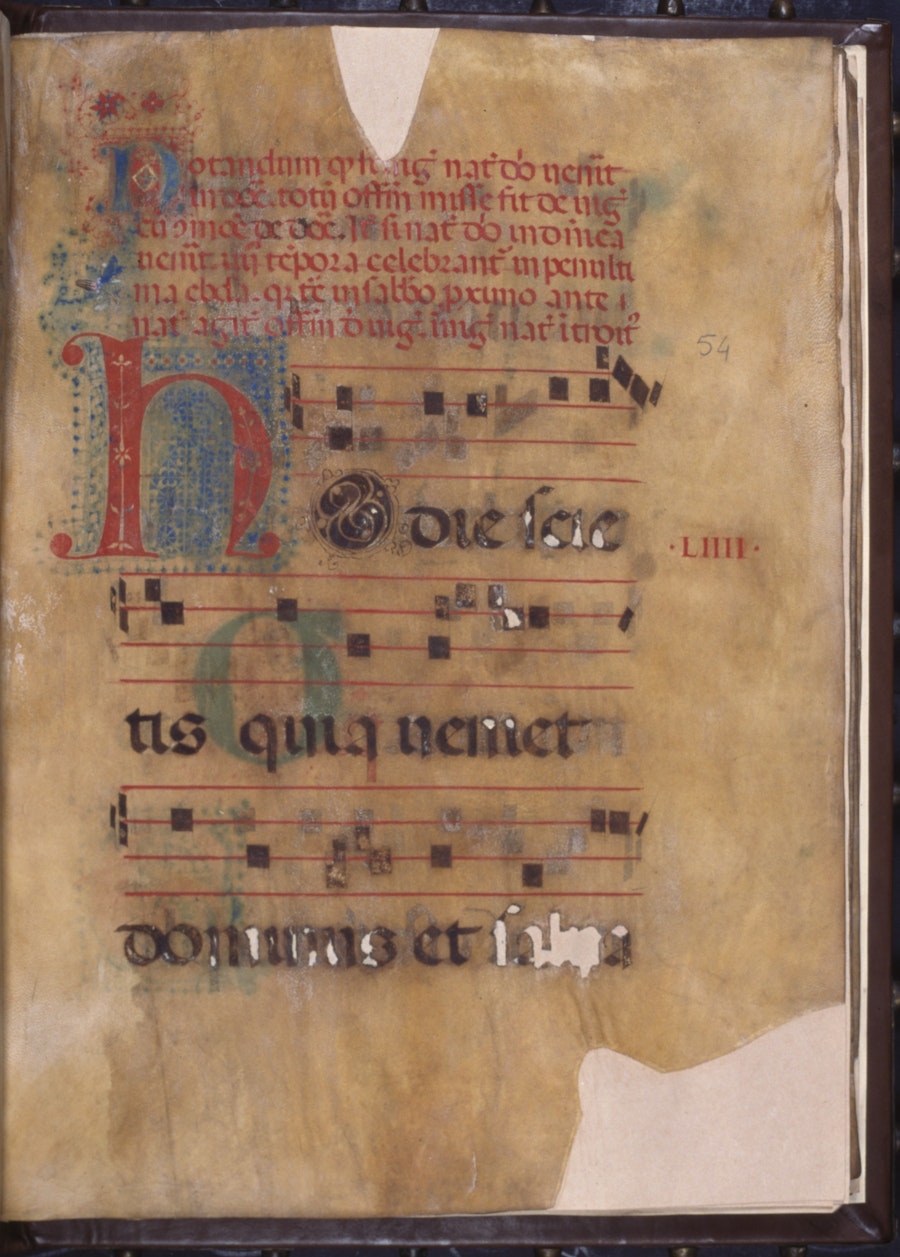 Notandum qͥ si uig̃ nat̃ do uen̄it
in occ̃. totũ offm̃ misse fit de uig̃
cũ ↄmoẽ de dñc̃. It̃ si nat̃ do in dominica
uen̄it. iiij tẽpora celebrant̃ in penulti
ma ebda. qr̃ tc̃ in sabbo pximo ante
nat̃ agit̃ offm̃ d̃ uig̃. in uig̃ nat̃ ĩtroit᷒
54
hodie scie
·LIIII·
tis quia ueniet
dominus et salua